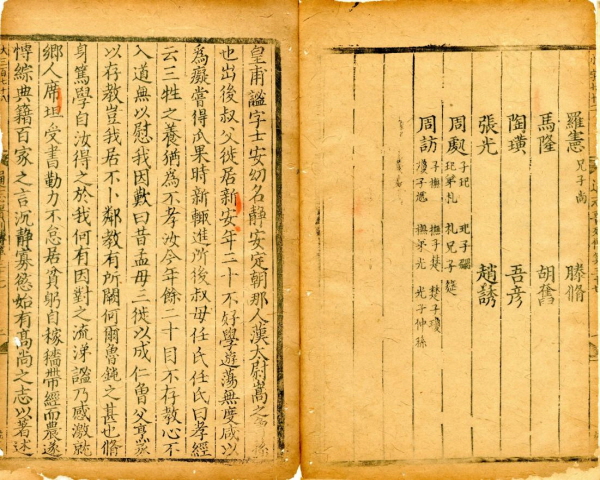 羅憲 兄子尚 滕脩
馬隆 胡奮
陶璜 吾彥
張光 趙誘
周處 子玘 玘子勰
玘弟札 札兄子莚
周訪 子撫 撫子楚 楚子瓊
瓊子虓 撫弟光 光子仲孫
皇甫謐字士安幼名靜安定朝那人漢太尉嵩之孫
也出後叔父徙居新安年二十不好學遊蕩無度咸以
為癡嘗得瓜果時新輒進所後叔母任氏任氏曰孝經
云三牲之養猶為不孝汝今年餘二十目不存教心不
入道無以慰我因歎曰昔孟母三徙以成仁曾父烹豕
以存教豈我居不卜鄰教有所闕何爾魯鈍之甚也脩
身篤學自汝得之於我何有因對之流涕謐乃感激就
鄉人席坦受書勤力不怠居貧躬自稼穡帶經而農遂
博綜典籍百家之言沉靜寡慾始有高尚之志以著述